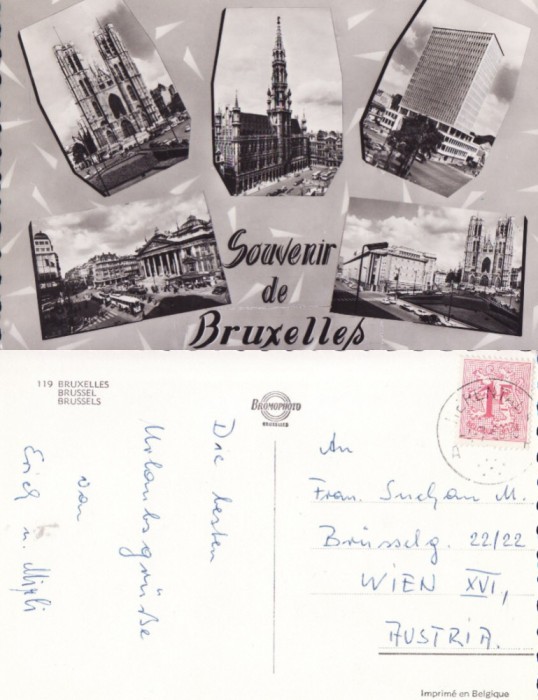 Souvenir
de
Bruxelles
119 BRUXELLES
BRUSSEL
BRUSSELS
BROMOPHOTO
BRUXELLES
1F
Die besten
Urlaubsgrüße
von
Erich u. Mizzi
An
Frau. Suchan M.
Brüsselg. 22/22
WIEN XVI,
AUSTRIA.
Imprimé en Belgique